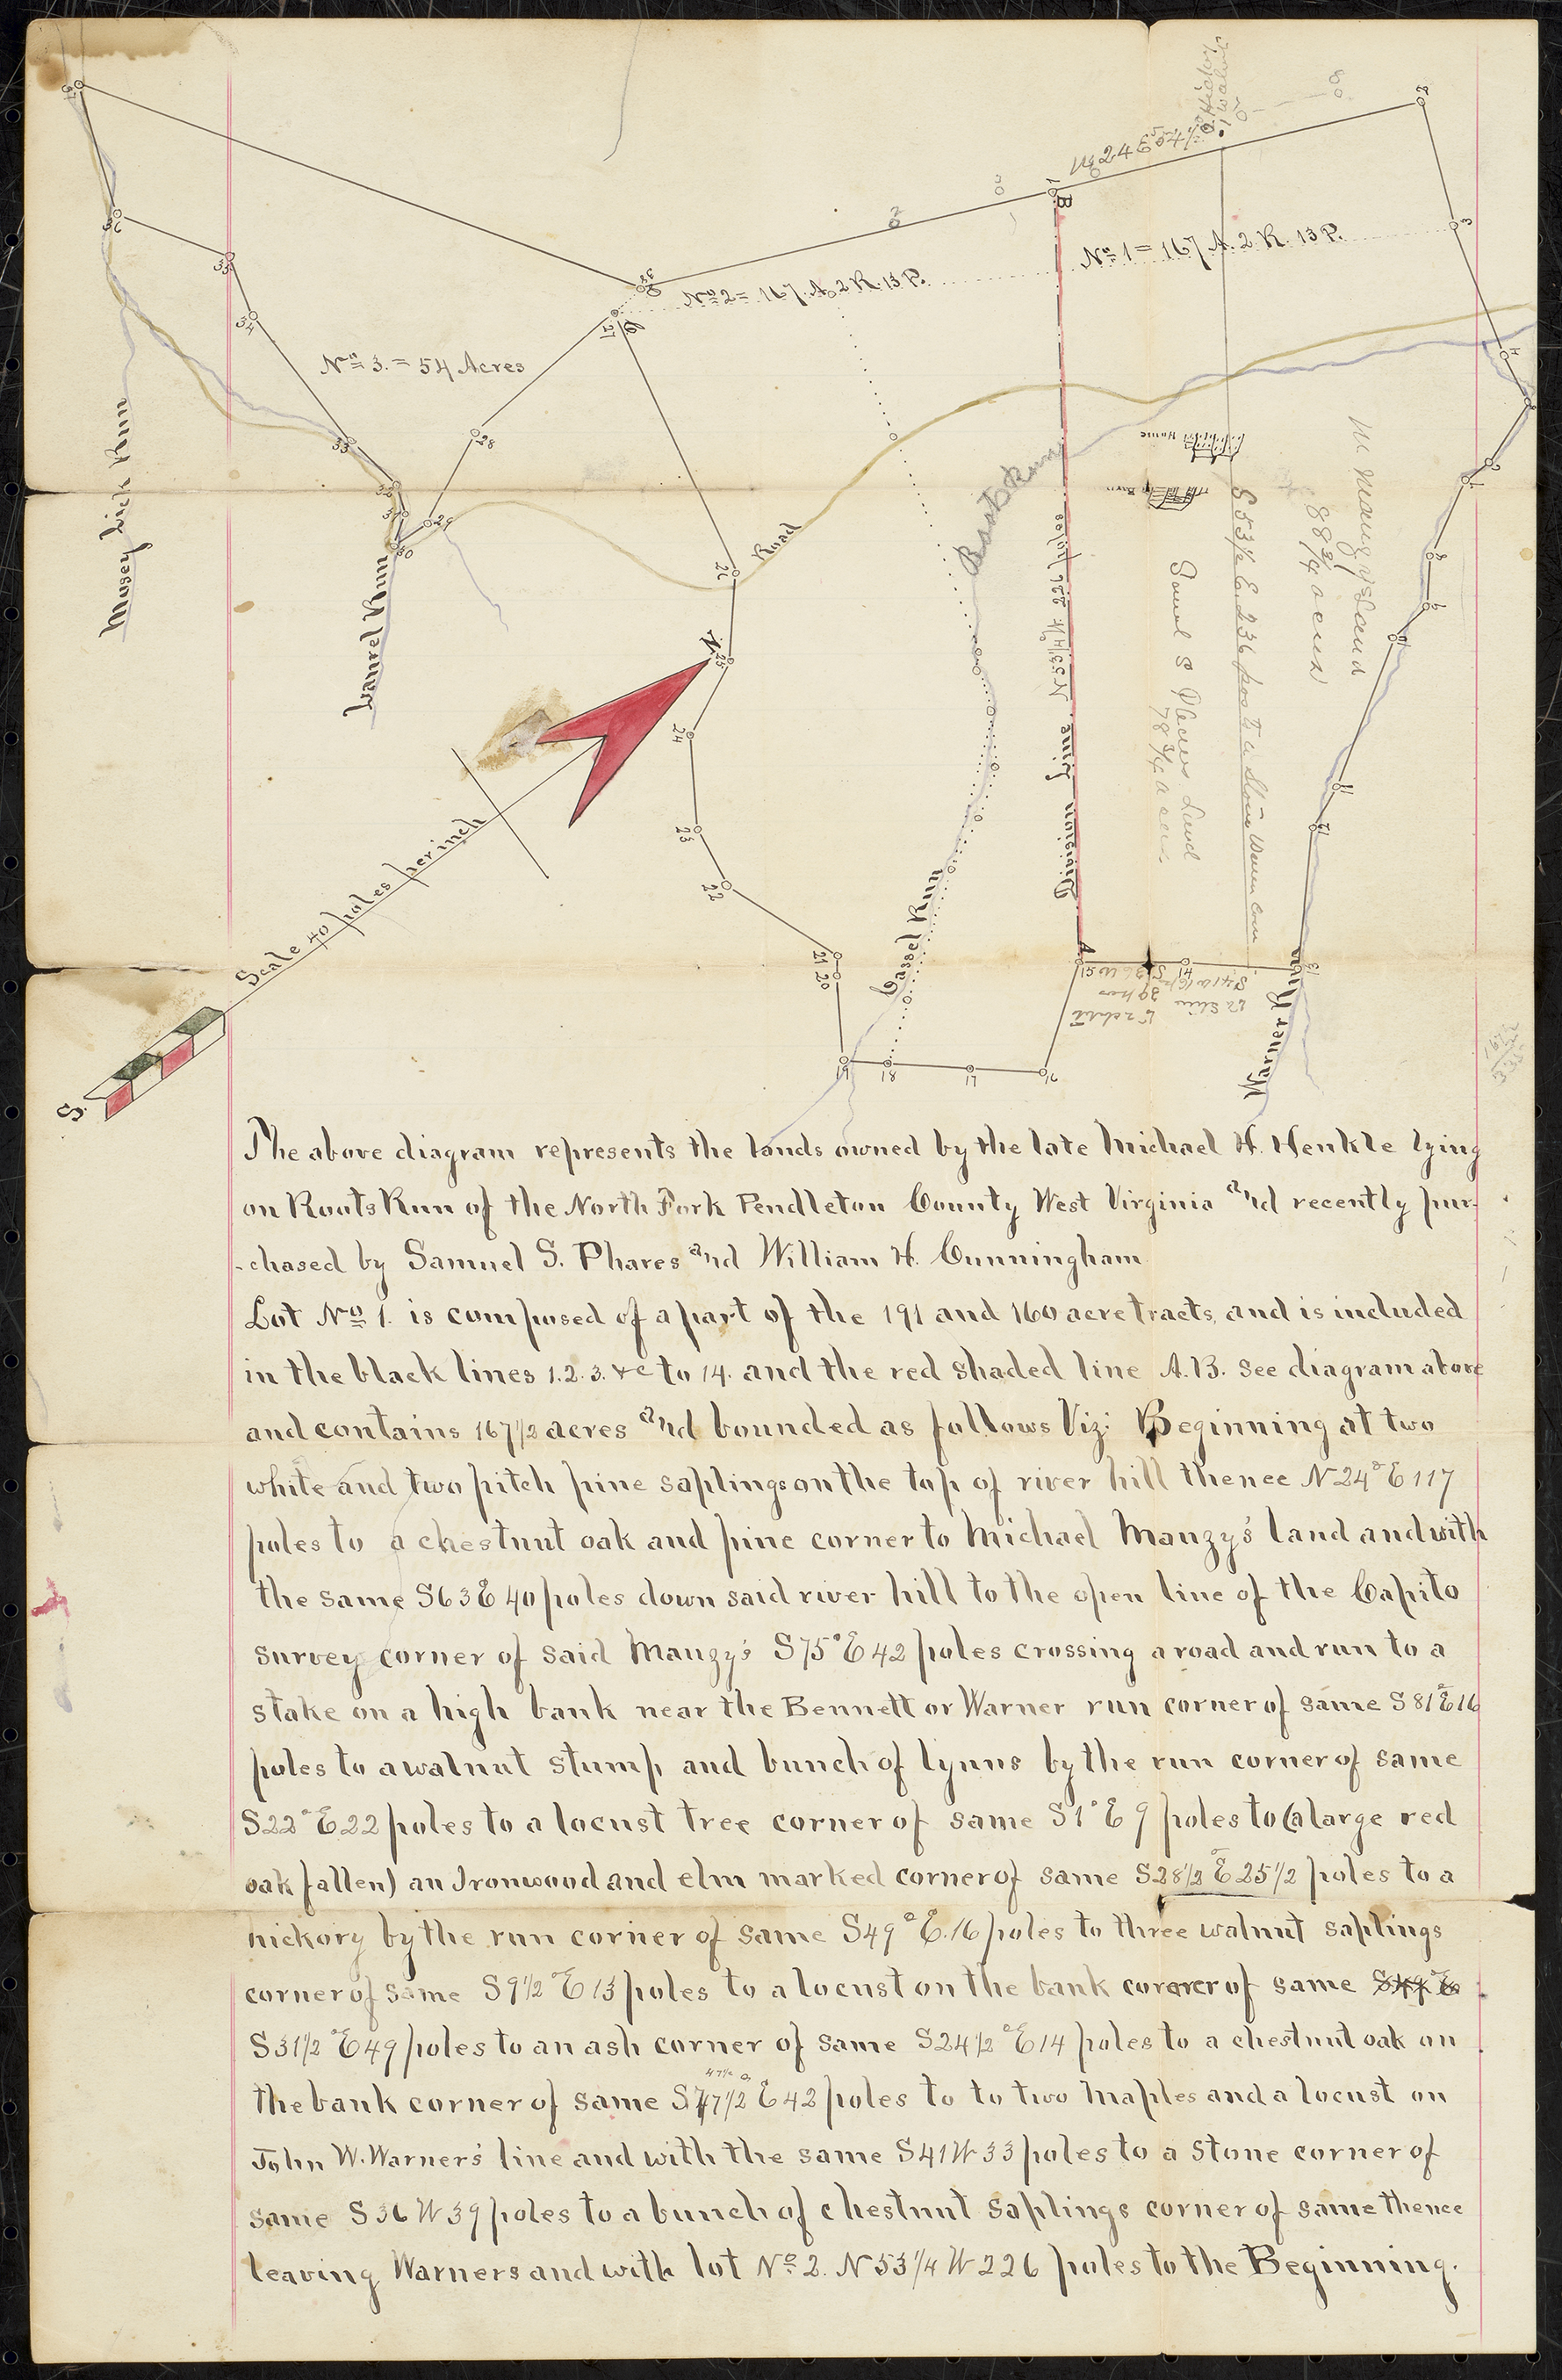 N 24 E 54 1/2
No 1 = 167 A. 2 R. 13 P.
No 2 = 167 A. 2 R. 13 P.
No 3. = 54 Acres
Mosey Lick Run
Laurel Run
Road
Roots Run
B
Division Line N 53 1/4 W 226 poles
A
S 53 1/2 E. 236 pos to a Stone Warner Corn
Saml S Phares Land
78 3/4 acres
M Mauzy Land
88 3/4 acres
House
Barn
Gassel Run
Warner Run
N.
Scale 40 poles per inch
S.
The above diagram represents the lands owned by the late Michael H. Henkle lying
on Roots Run of the North Fork Pendleton County West Virginia and recently pur-
-chased by Samuel S. Phares and William H. Cunningham
Lot No 1. is composed of a part of the 191 and 160 acre tracts, and is included
in the black lines 1. 2. 3. &c to 14. and the red shaded line A. B. see diagram above
and contains 167 1/2 acres and bounded as follows Viz: Beginning at two
white and two pitch pine saplings on the top of river hill thence N 24° E 117
poles to a chestnut oak and pine corner to Michael Mauzy's land and with
the same S 63 E 40 poles down said river hill to the open line of the Capito
survey corner of said Mauzy's S 75° E 42 poles crossing a road and run to a
stake on a high bank near the Bennett or Warner run corner of same S 81° E 16
poles to a walnut stump and bunch of lynns by the run corner of same
S 22° E 22 poles to a locust tree corner of same S 1° E 9 poles to (a large red
oak fallen) an Ironwood and elm marked corner of same S 28 1/2° E 25 1/2 poles to a
hickory by the run corner of same S 49° E. 16 poles to three walnut saplings
corner of same S 9 1/2° E 13 poles to a locust on the bank cororer of same S 44 E
S 31 1/2° E 49 poles to an ash corner of same S 24 1/2° E 14 poles to a chestnut oak on
the bank corner of same S 47 1/2 E 42 poles to to two maples and a locust on
John W. Warner's line and with the same S 41 W 33 poles to a stone corner of
same S 36 W 39 poles to a bunch of chestnut saplings corner of same thence
leaving Warners and with lot No 2. N 53 1/4 W 226 poles to the Beginning.